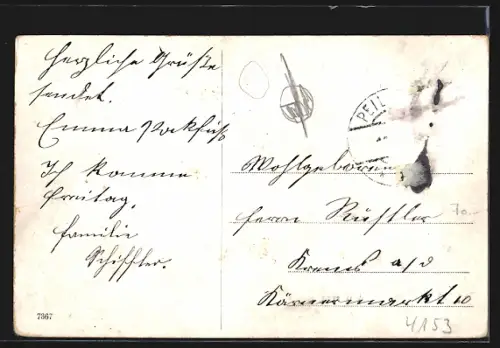 Herzliche Grüße
sendet.
Emma
Ich komme
Freitag.
Familie
Schiffler.
7367
PEI
Wohlgeboren
Herrn Rußtler
70.-
Krems a/d
Körnermarkt 10
4153